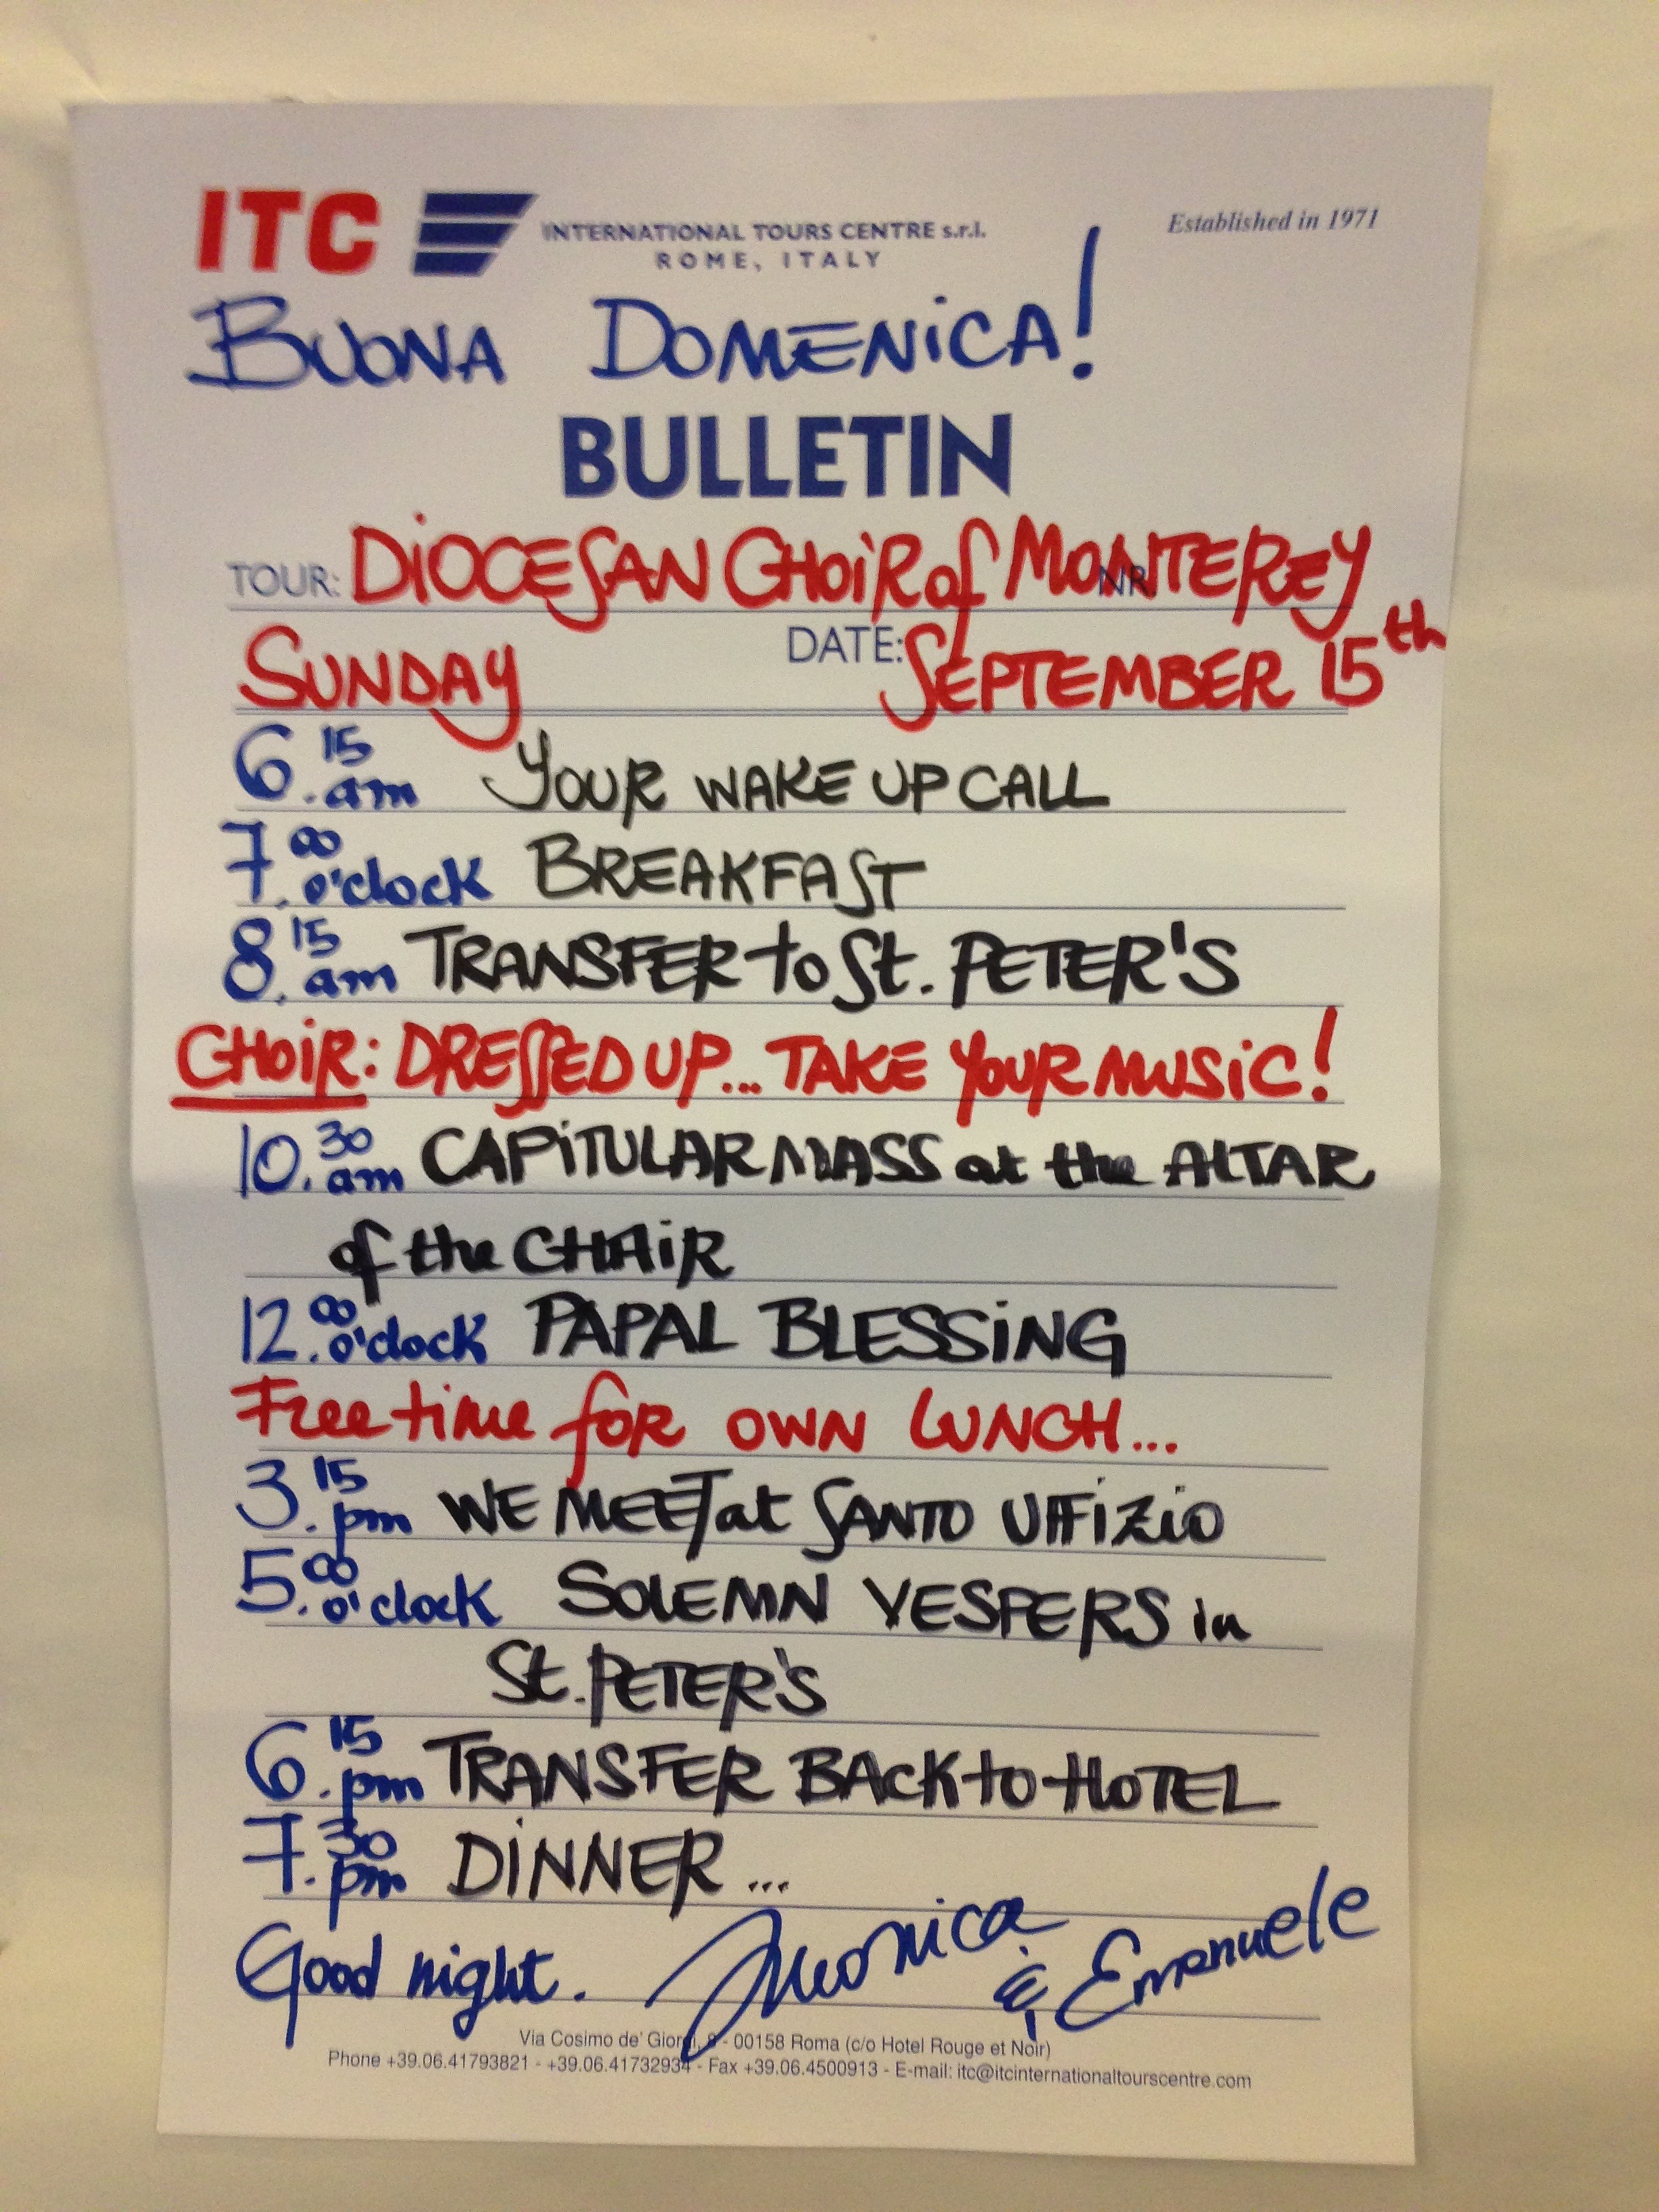 ITC INTERNATIONAL TOURS CENTRE s.r.l.
ROME, ITALY
Established in 1971
BUONA DOMENICA!
BULLETIN
TOUR: DIOCESAN CHOIR of MONTEREY NR.
SUNDAY DATE: SEPTEMBER 15th
6.15 am YOUR WAKE UP CALL
7.00 o'clock BREAKFAST
8.15 am TRANSFER to St. PETER'S
CHOIR: DRESSED UP... TAKE YOUR MUSIC!
10.30 am CAPITULAR MASS at the ALTAR
of the CHAIR
12.00 o'clock PAPAL BLESSING
Free time for OWN LUNCH...
3.15 pm WE MEET at SANTO UFFIZIO
5.00 o'clock SOLEMN VESPERS in
St. PETER'S
6.15 pm TRANSFER BACK to HOTEL
7.30 pm DINNER...
Good night. Monica & Emanuele
Via Cosimo de' Giorgi, 8 - 00158 Roma (c/o Hotel Rouge et Noir)
Phone +39.06.41793821 - +39.06.41732934 - Fax +39.06.4500913 - E-mail: itc@itcinternationaltourscentre.com